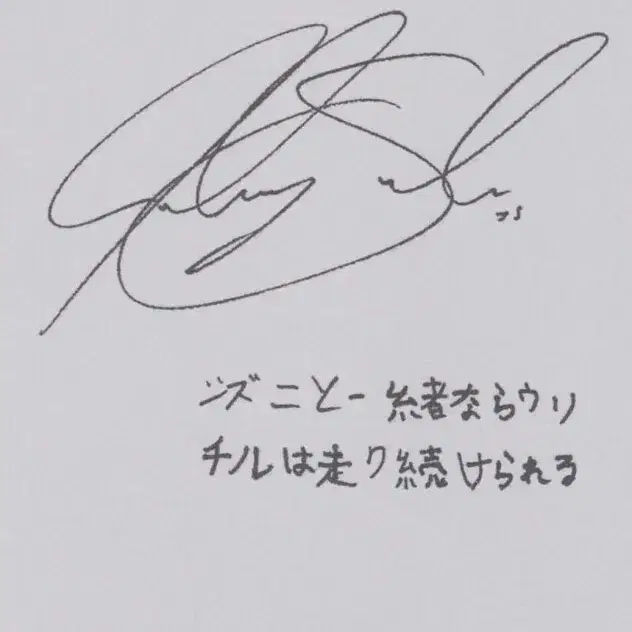 ジズニと一緒ならウリ
チルは走り続けられる